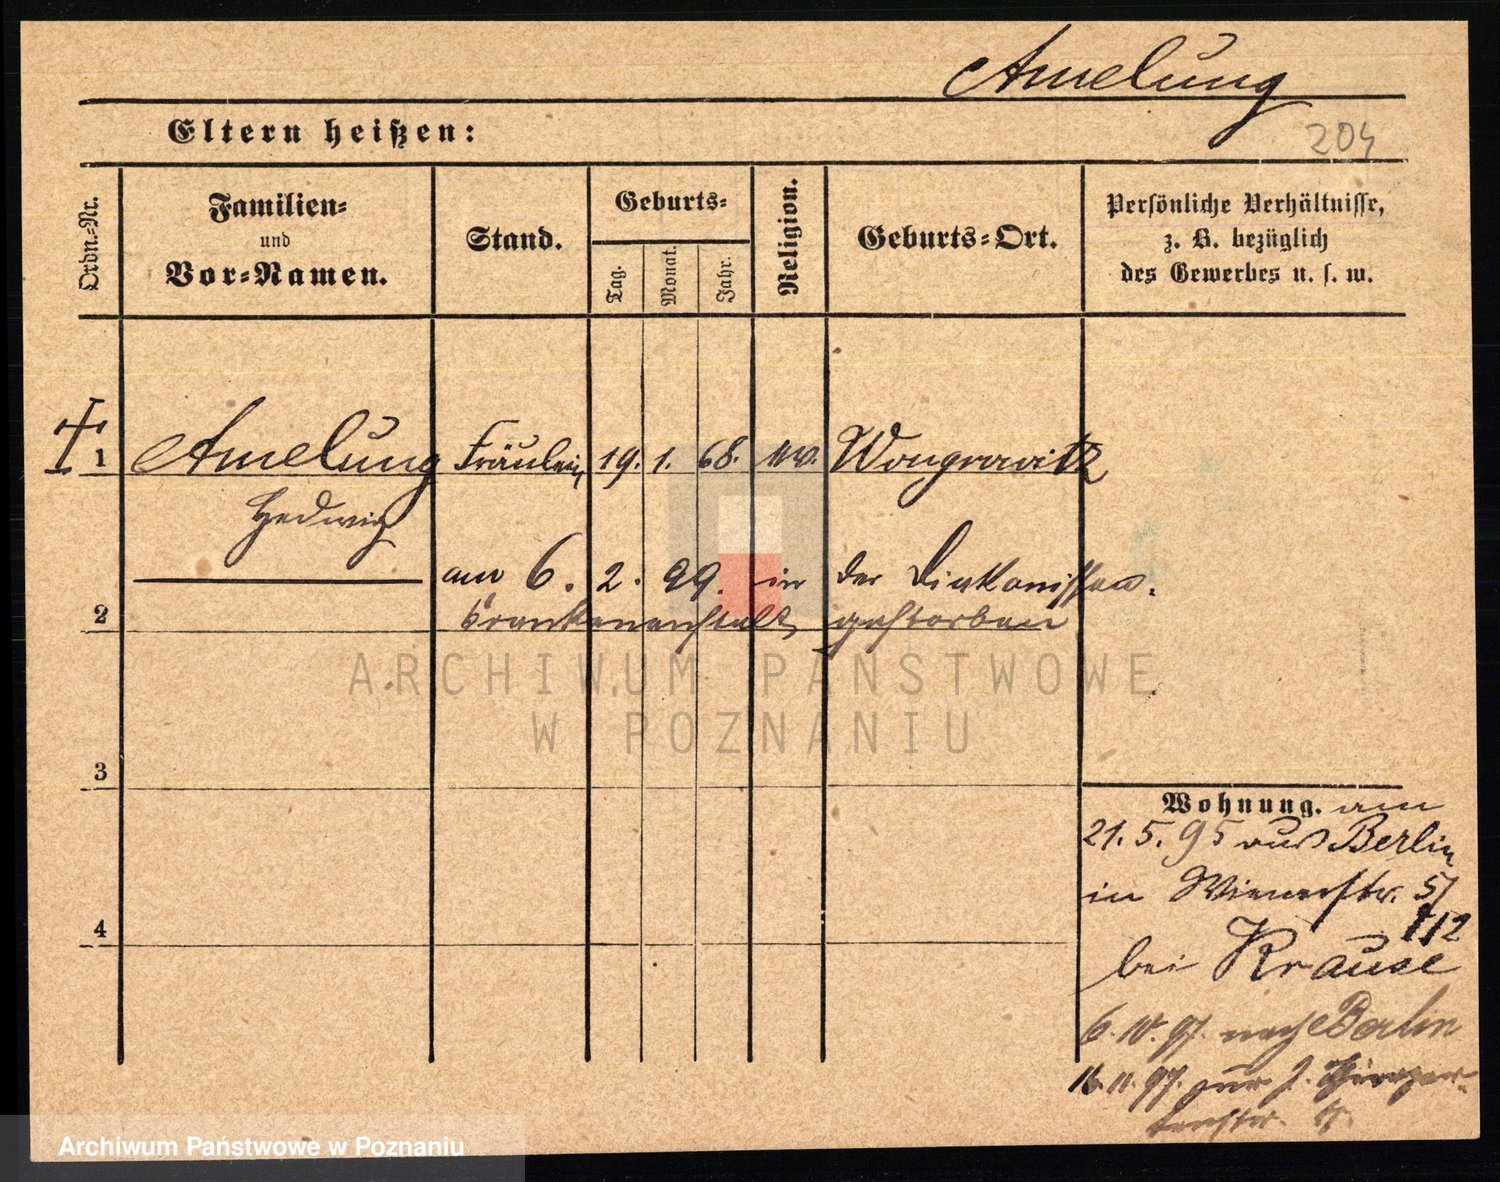 Amelung
Eltern heißen:
204
Ordn.-Nr.
Familien-
und
Vor-Namen.
Stand.
Geburts-
Tag.
Monat.
Jahr.
Religion.
Geburts-Ort.
Persönliche Verhältnisse,
z. B. bezüglich
des Gewerbes u. s. w.
1 Amelung Fräulein 19. 1. 68. Wongrowitz
Hedwig
am 6. 2. 99. in der Diakonissen
krankenanstalt gestorben
2
ARCHIWUM PAŃSTWOWE
W POZNANIU
3
4
Wohnung. am
21. 5. 95 aus Berlin
in Wienerstr. 5/
bei Krause
6. 10. 97. nach Berlin
16. 11. 97. zur
Archiwum Państwowe w Poznaniu